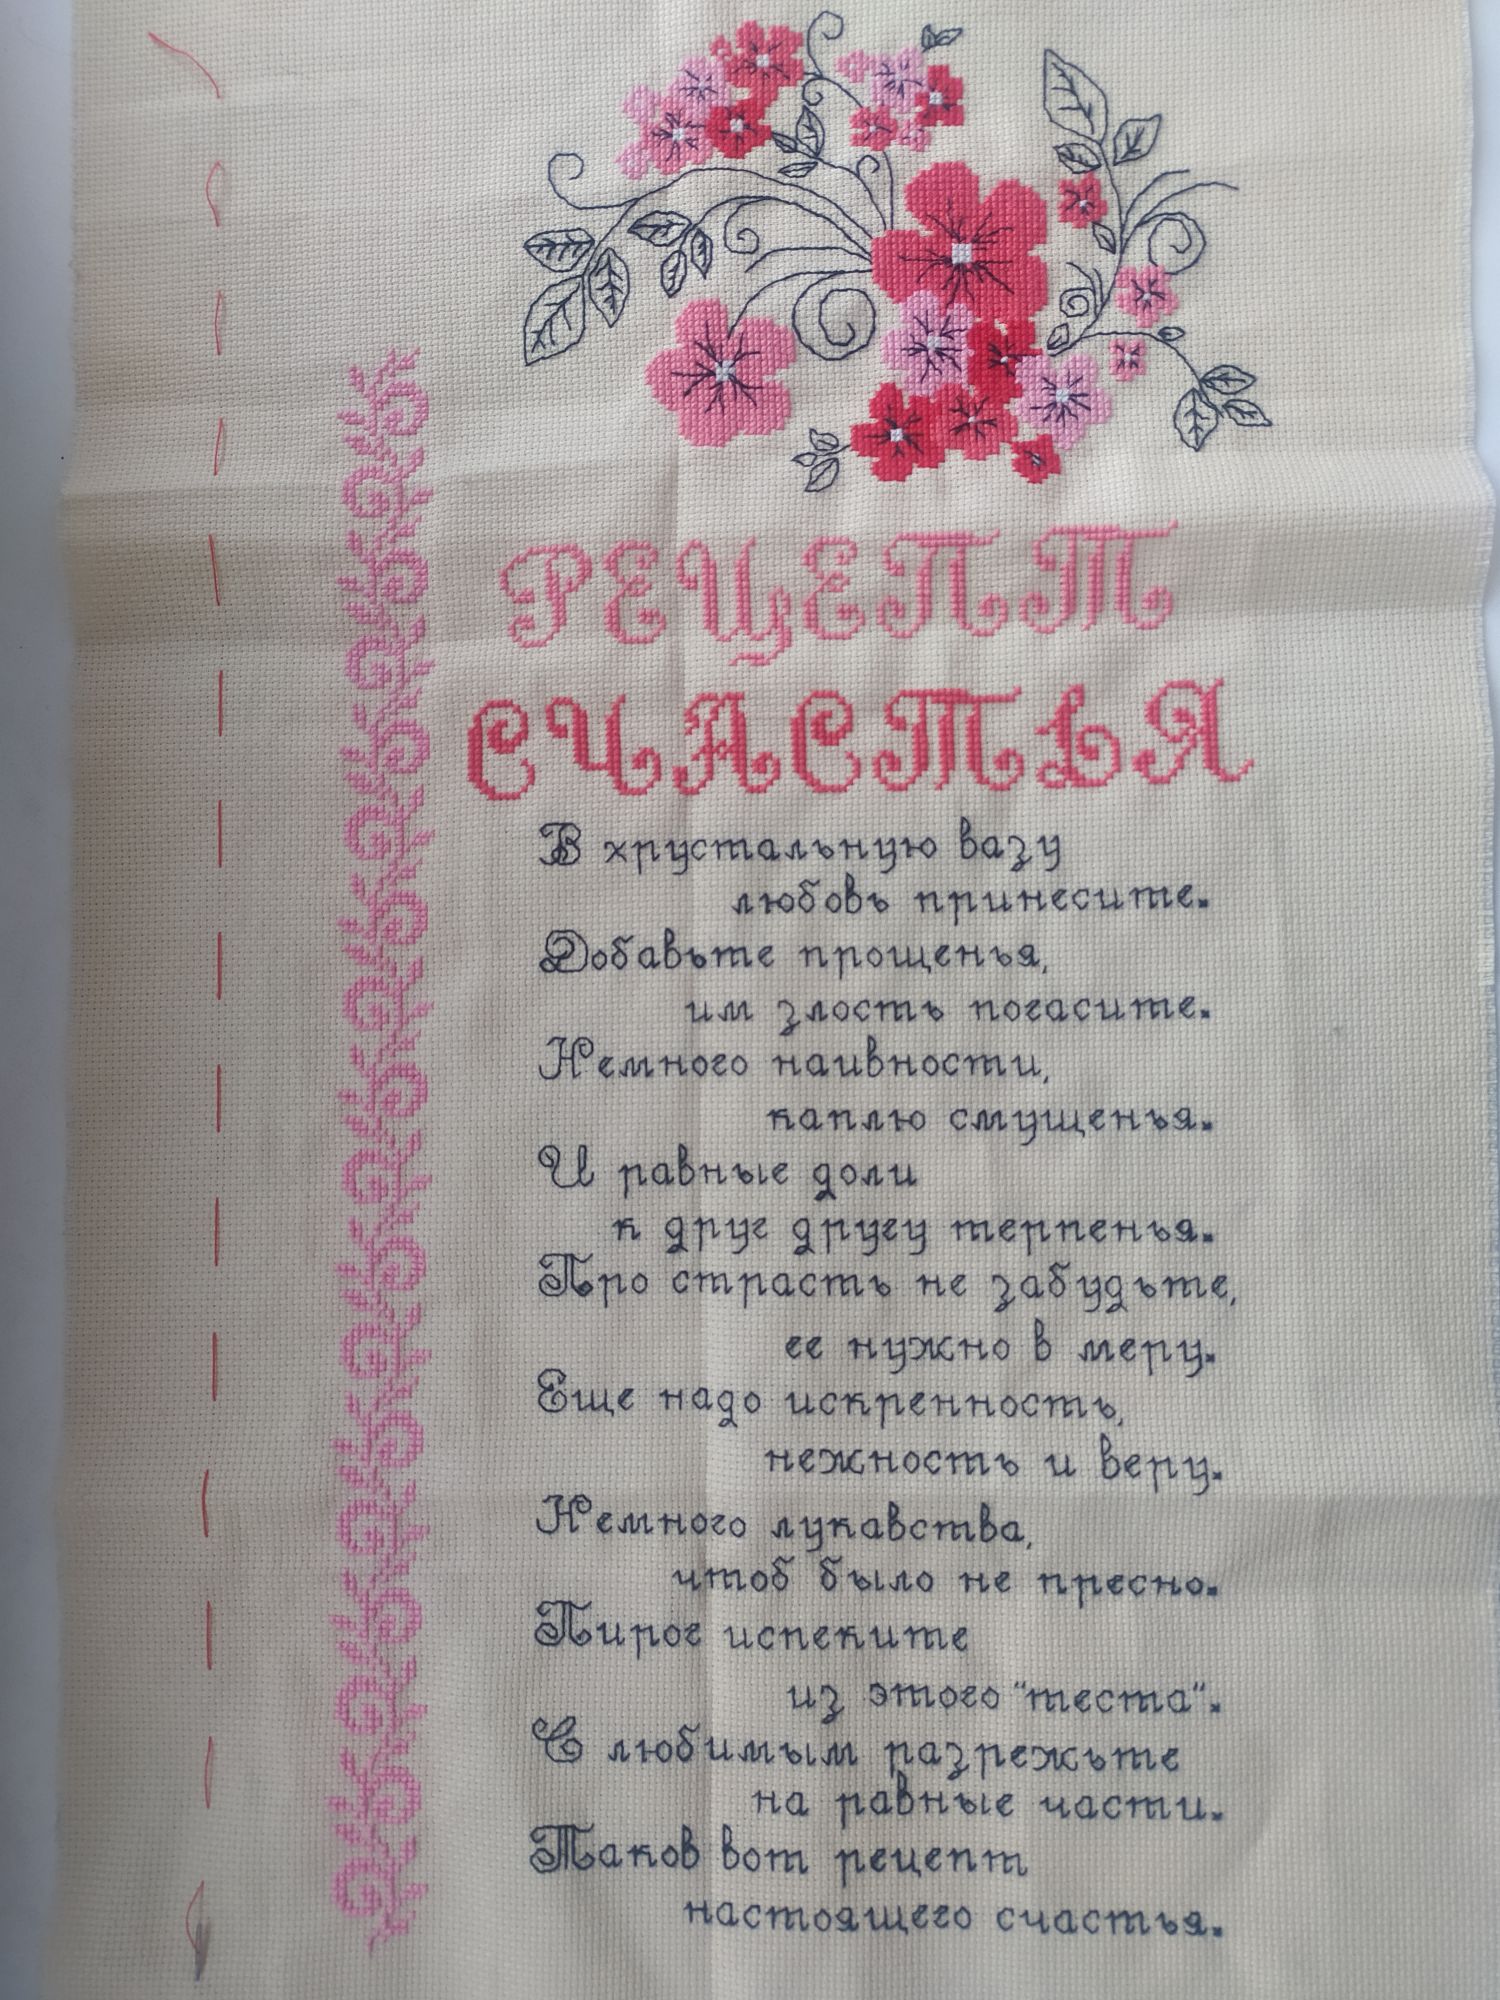 РЕЦЕПТ
СЧАСТЬЯ
В хрустальную вазу
любовь принесите.
Добавьте прощенья,
им злость погасите.
Немного наивности,
каплю смущенья.
И равные доли
к друг другу терпенья.
Про страсть не забудьте,
ее нужно в меру.
Еще надо искренность,
нежность и веру.
Немного лукавства,
чтоб было не пресно.
Пирог испеките
из этого "теста".
С любимым разрежьте
на равные части.
Таков вот рецепт
настоящего счастья.